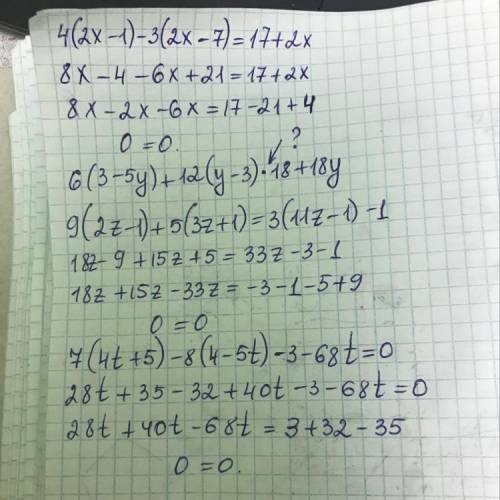 4(2x-1)-3(2x-7)=17+2x
8x-4-6x+21=17+2x
8x-2x-6x=17-21+4
0=0.
?
6(3-5y)+12(y-3)·18+18y
9(2z-1)+5(3z+1)=3(11z-1)-1
18z-9+15z+5=33z-3-1
18z+15z-33z=-3-1-5+9
0=0
7(4t+5)-8(4-5t)-3-68t=0
28t+35-32+40t-3-68t=0
28t+40t-68t=3+32-35
0=0.